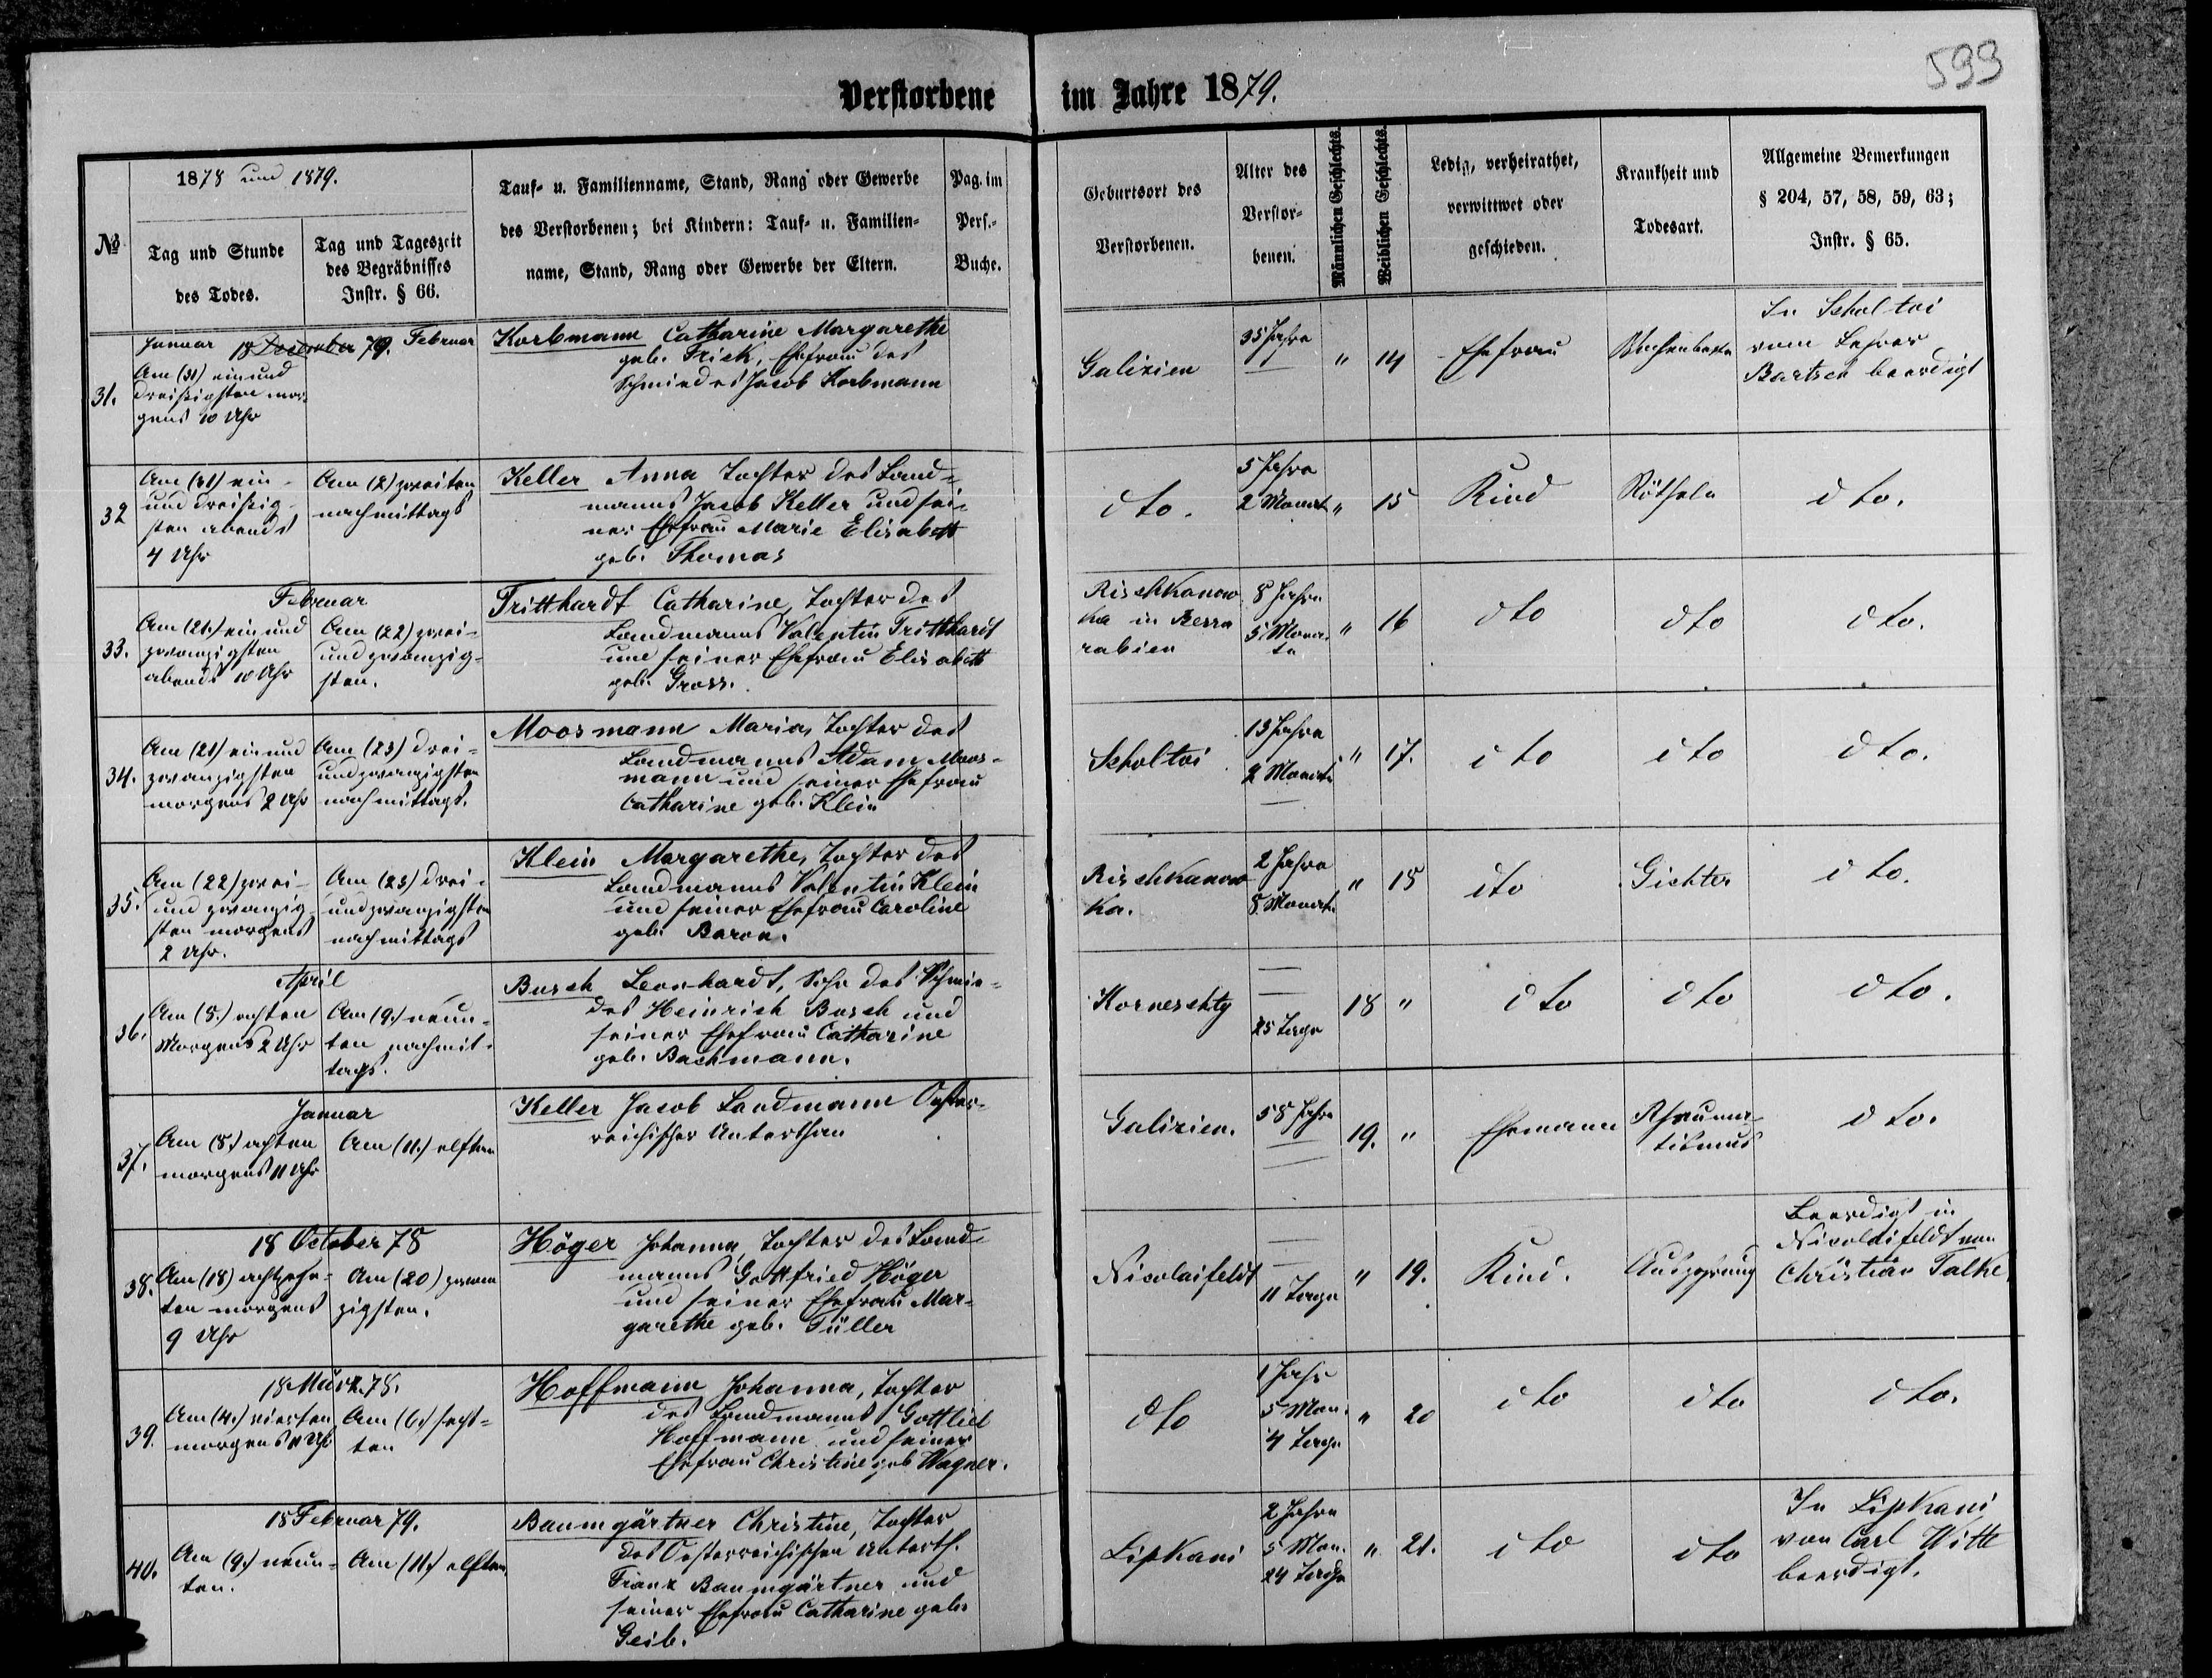 599
Verstorbene im Jahre 1879.
№
1878 und 1879.
Tag und Stunde
des Todes.
Tag und Tageszeit
des Begräbnisses
Instr. § 66.
Tauf- u. Familienname, Stand, Rang oder Gewerbe
des Verstorbenen; bei Kindern: Tauf- u. Familien-
name, Stand, Rang oder Gewerbe der Eltern.
Pag. im
Pers.-
Buche.
Geburtsort des
Verstorbenen.
Alter des
Verstor-
benen.
Männlichen Geschlechts.
Weiblichen Geschlechts.
Ledig, verheirathet,
verwittwet oder
geschieden.
Krankheit und
Todesart.
Allgemeine Bemerkungen
§ 204, 57, 58, 59, 63;
Instr. § 65.
31.
Januar 18 December 79. Februar
Am (31) einund
dreißigsten mor-
gens 10 Uhr
Korbmann Catharine Margarethe
geb. Frick, Ehefrau des
Schmiedes Jacob Korbmann
Galizien
35 Jahre
" 14
Ehefrau
In Scholtoi
vom Lehrer
Bartsch beerdigt
32
Am (31) ein-
und dreißig-
sten abends
4 Uhr
Am (2) zweiten
nachmittags
Keller Anna Tochter des Land-
manns Jacob Keller und sei-
ner Ehefrau Marie Elisabett
geb. Thomas
dto.
5 Jahre
2 Monate
" 15
Kind
Rötheln
dto.
Februar
33.
Am (21.) einund
zwanzigsten
abends 10 Uhr
Am (22) zwei-
und zwanzig-
sten.
Tritthardt Catharine, Tochter des
Landmanns Valentin Tritthardt
und seiner Ehefrau Elisabett
geb. Gross.
Rischkanow
ka in Bessa
rabien
8 Jahre
5 Mona-
te
" 16
dto
dto
dto.
34.
Am (21) einund
zwanzigsten
morgens 2 Uhr
Am (23) drei-
undzwanzigsten
nachmittags.
Moosmann Maria, Tochter des
Landmanns Adam Moos-
mann und seiner Ehefrau
Catharine geb. Klein
Scholtoi
13 Jahre
2 Monate
" 17.
dto
dto
dto.
35.
Am (22) zwei-
und zwanzig-
sten morgens
2 Uhr.
Am (23) drei-
undzwanzigsten
nachmittags
Klein Margarethe, Tochter des
Landmanns Valentin Klein
und seiner Ehefrau Caroline
geb. Baron.
Rischkanow
ka.
2 Jahre
8 Monate
" 18
dto
Gichter
dto.
April
36.
Am (8.) achten
Morgens 2 Uhr
Am (9.) neun-
ten nachmit-
tags.
Busch Leonhardt, Sohn des Schmie-
des Heinrich Busch und
seiner Ehefrau Catharine
geb. Bachmann.
Korneschty
25 Tage
18 "
dto
dto
dto.
Januar
37.
Am (8.) achten
morgens 11 Uhr
Am (11.) elften
Keller Jacob Landmann Oester-
reichischer Unterthan
Galizien.
58 Jahre
19. "
Ehemann
Rheuma-
tismus
dto.
18 October 78
38.
Am (18) achtzehn-
ten morgens
9 Uhr
Am (20) zwan
zigsten.
Höger Johanna, Tochter des Land-
manns Gottfried Höger
und seiner Ehefrau Mar-
garethe geb. Füller
Nicolaifeldt
11 Tage
" 19.
Kind.
Auszehrung
Beerdigt in
Nicolaifeldt von
Christian Falke.
18 März. 78.
39.
Am (4.) vierten
morgens 11 Uhr
Am (6.) sechs-
ten
Hoffmann Johanna, Tochter
des Landmanns Gottlieb
Hoffmann und seiner
Ehefrau Christine geb. Wagner.
dto
1 Jahr
5 Mon.
4 Tage
" 20
dto
dto
dto.
18 Februar 79.
40.
Am (9.) neun-
ten.
Am (11.) elften
Baumgärtner Christine, Tochter
des Oesterreichischen Unterth.
Franz Baumgärtner und
seiner Ehefrau Catharine geb.
Geib.
Lipkani
2 Jahre
5 Mon.
24 Tage
" 21.
dto
dto
In Lipkani
von Carl Witt
beerdigt.